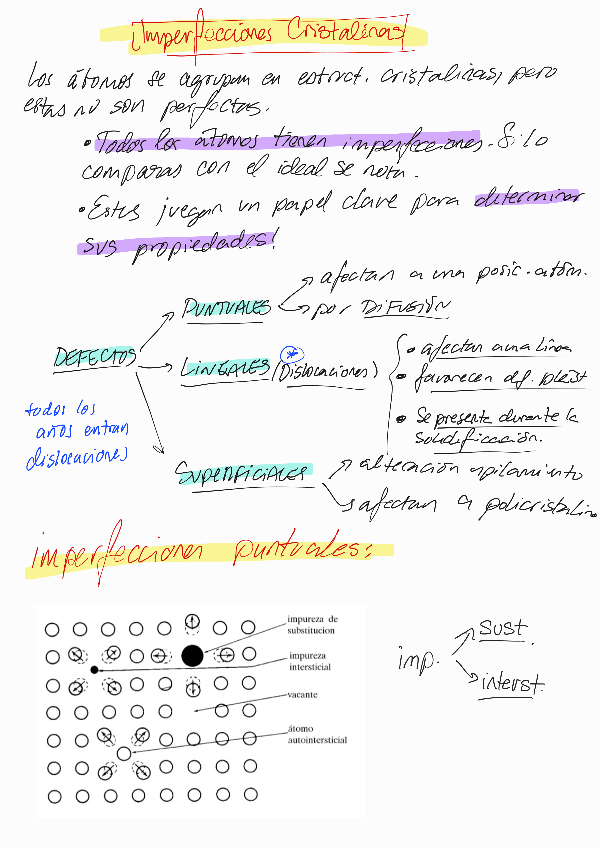 ¡Imperfecciones Cristalinas!
Los átomos se agrupan en estruct. cristalinas, pero
estas no son perfectas.
• Todos los átomos tienen imperfecciones. Si lo
comparas con el ideal se nota.
• Estas juegan un papel clave para determinar
sus propiedades!
→ afectan a una posic. atóm.
PUNTUALES
→ por DIFUSIÓN
DEFECTOS
LINEALES (Dislocaciones)
• afectan a una línea
• favorecen def. plást
• Se presenta durante la
solidificación.
todos los
años entran
dislocaciones
SUPERFICIALES
→ alteración apilamiento
→ afectan a policristalino
imperfecciones puntuales:
impureza de
substitucion
impureza
intersticial
vacante
átomo
autointersticial
imp.
sust.
interst.